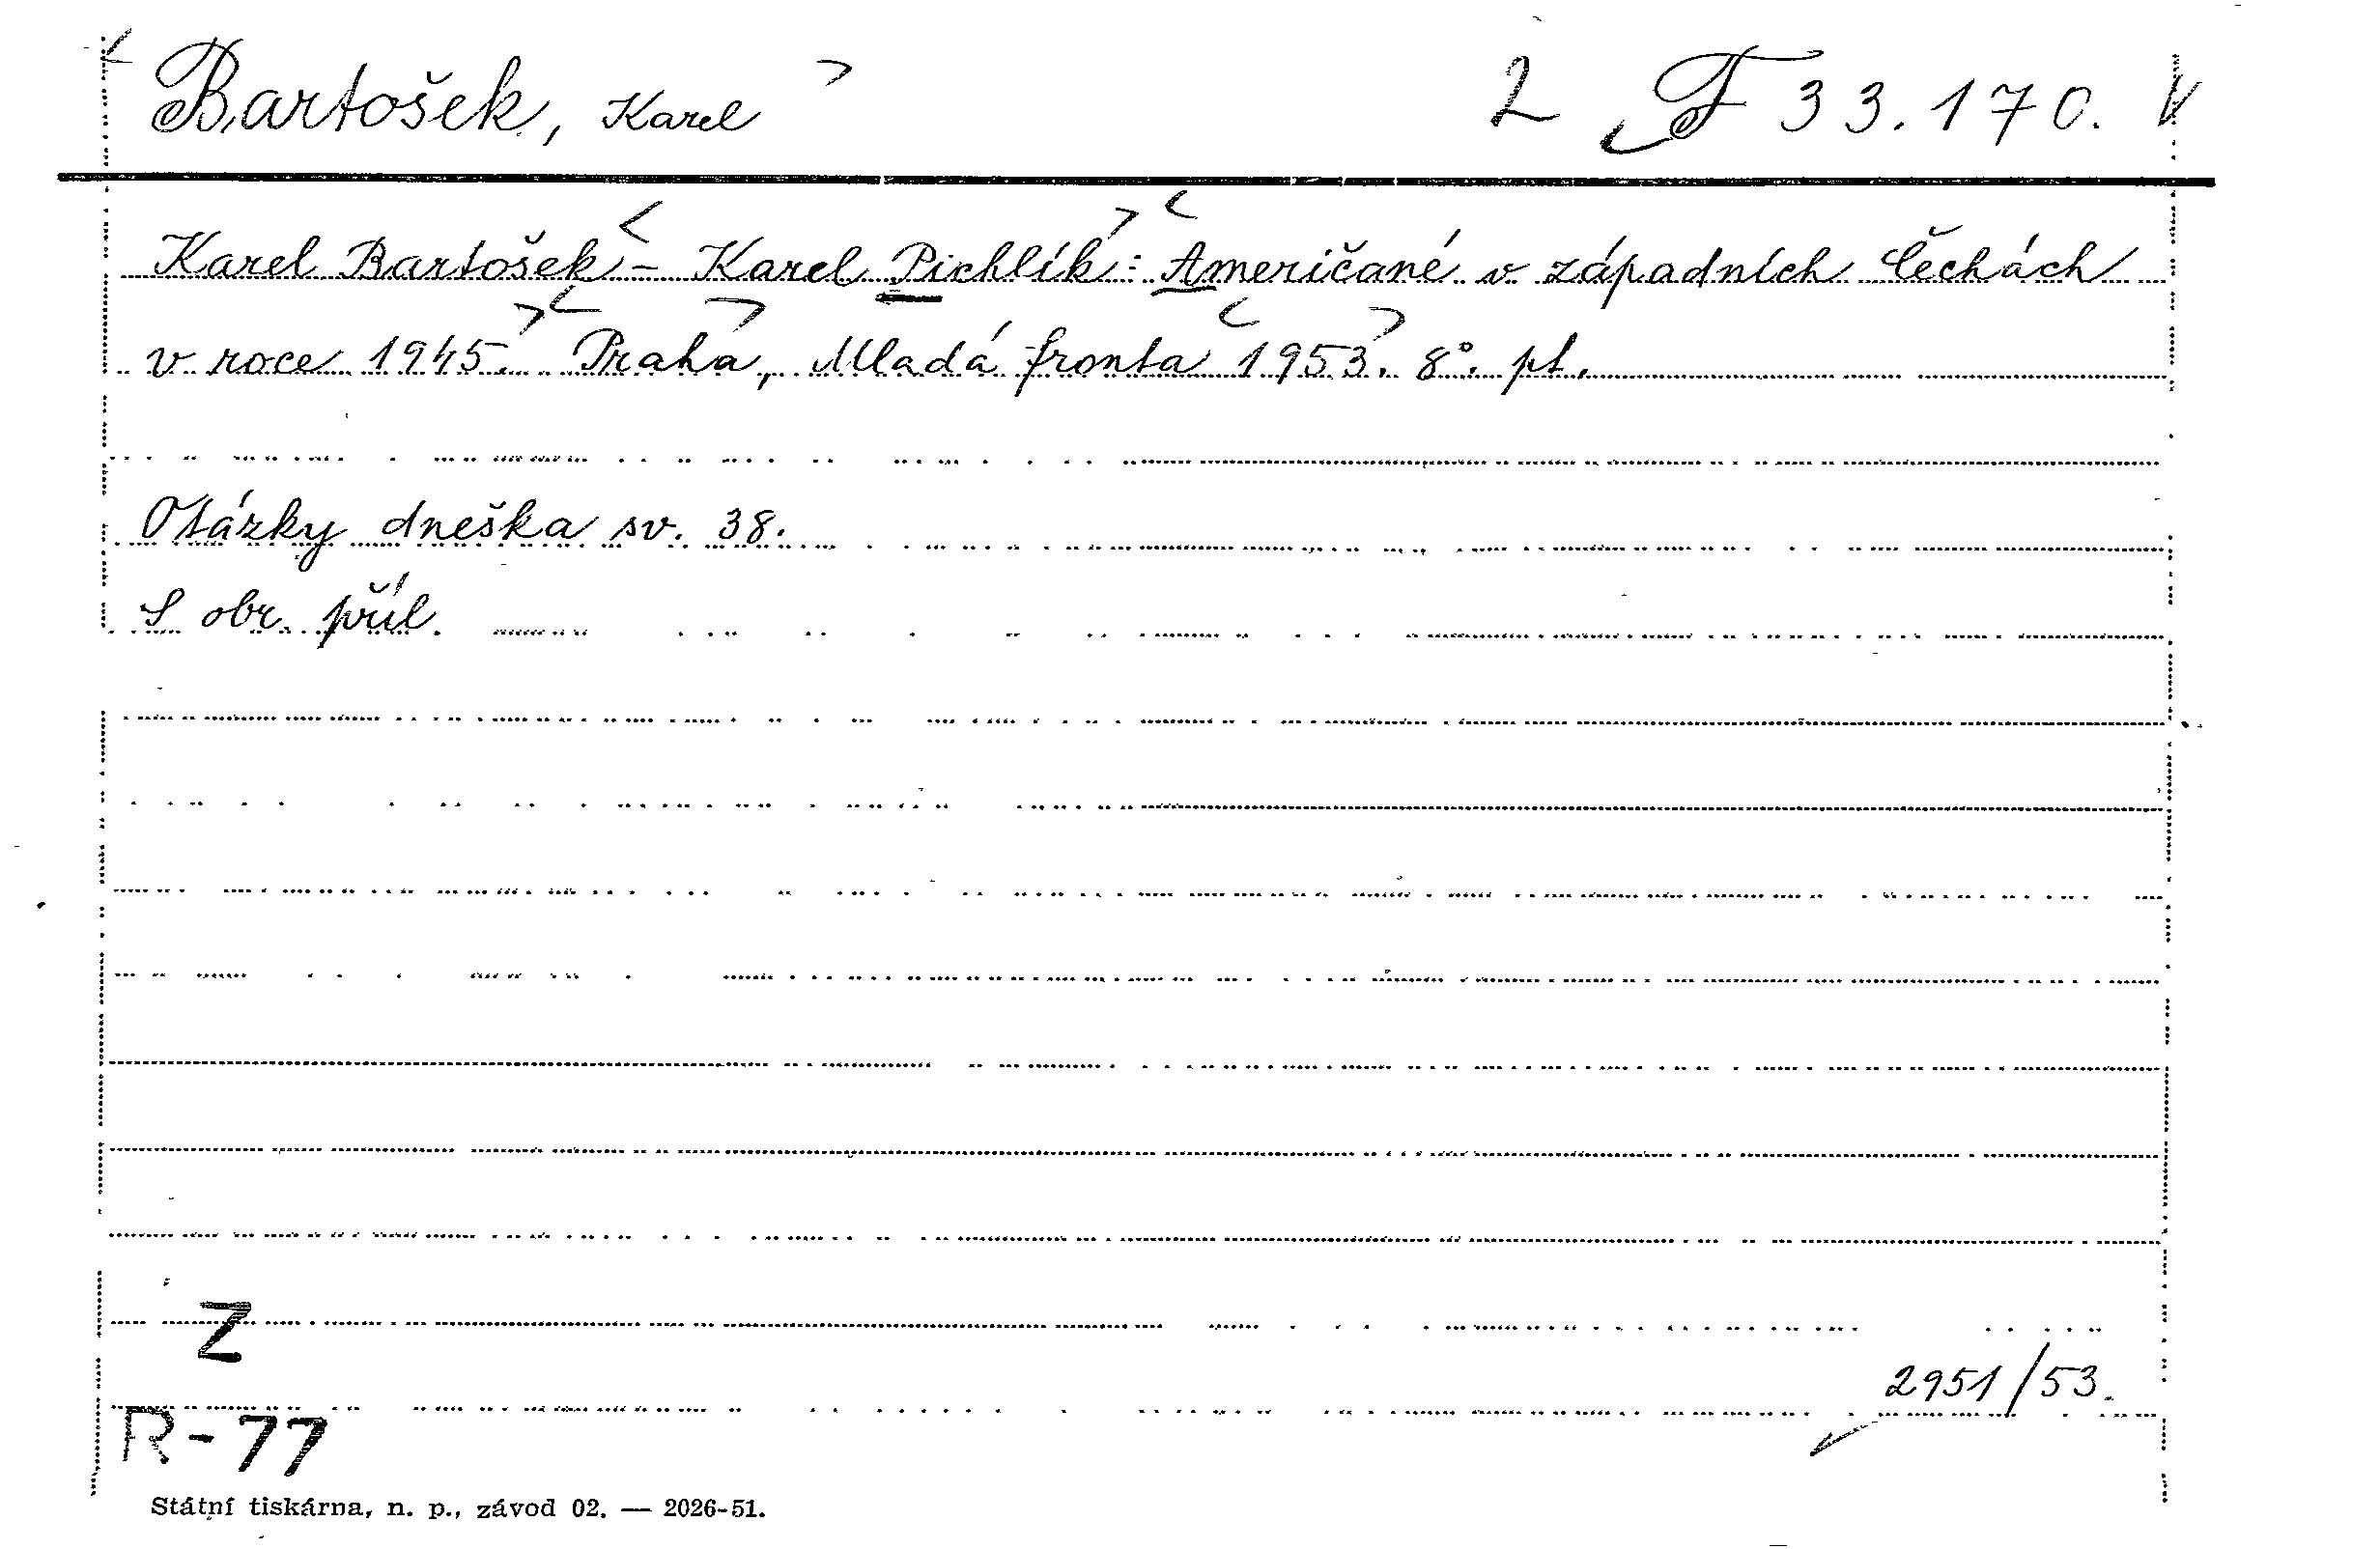 Bartošek, Karel 2 F 33.170.
Karel Bartošek - Karel Pichlík: Američané v západních Čechách
v roce 1945. Praha, Mladá fronta 1953. 8°. pt.
Otázky dneška sv. 38.
S obr. příl.
Z
2951/53.
R-77
Státní tiskárna, n. p., závod 02. — 2026-51.